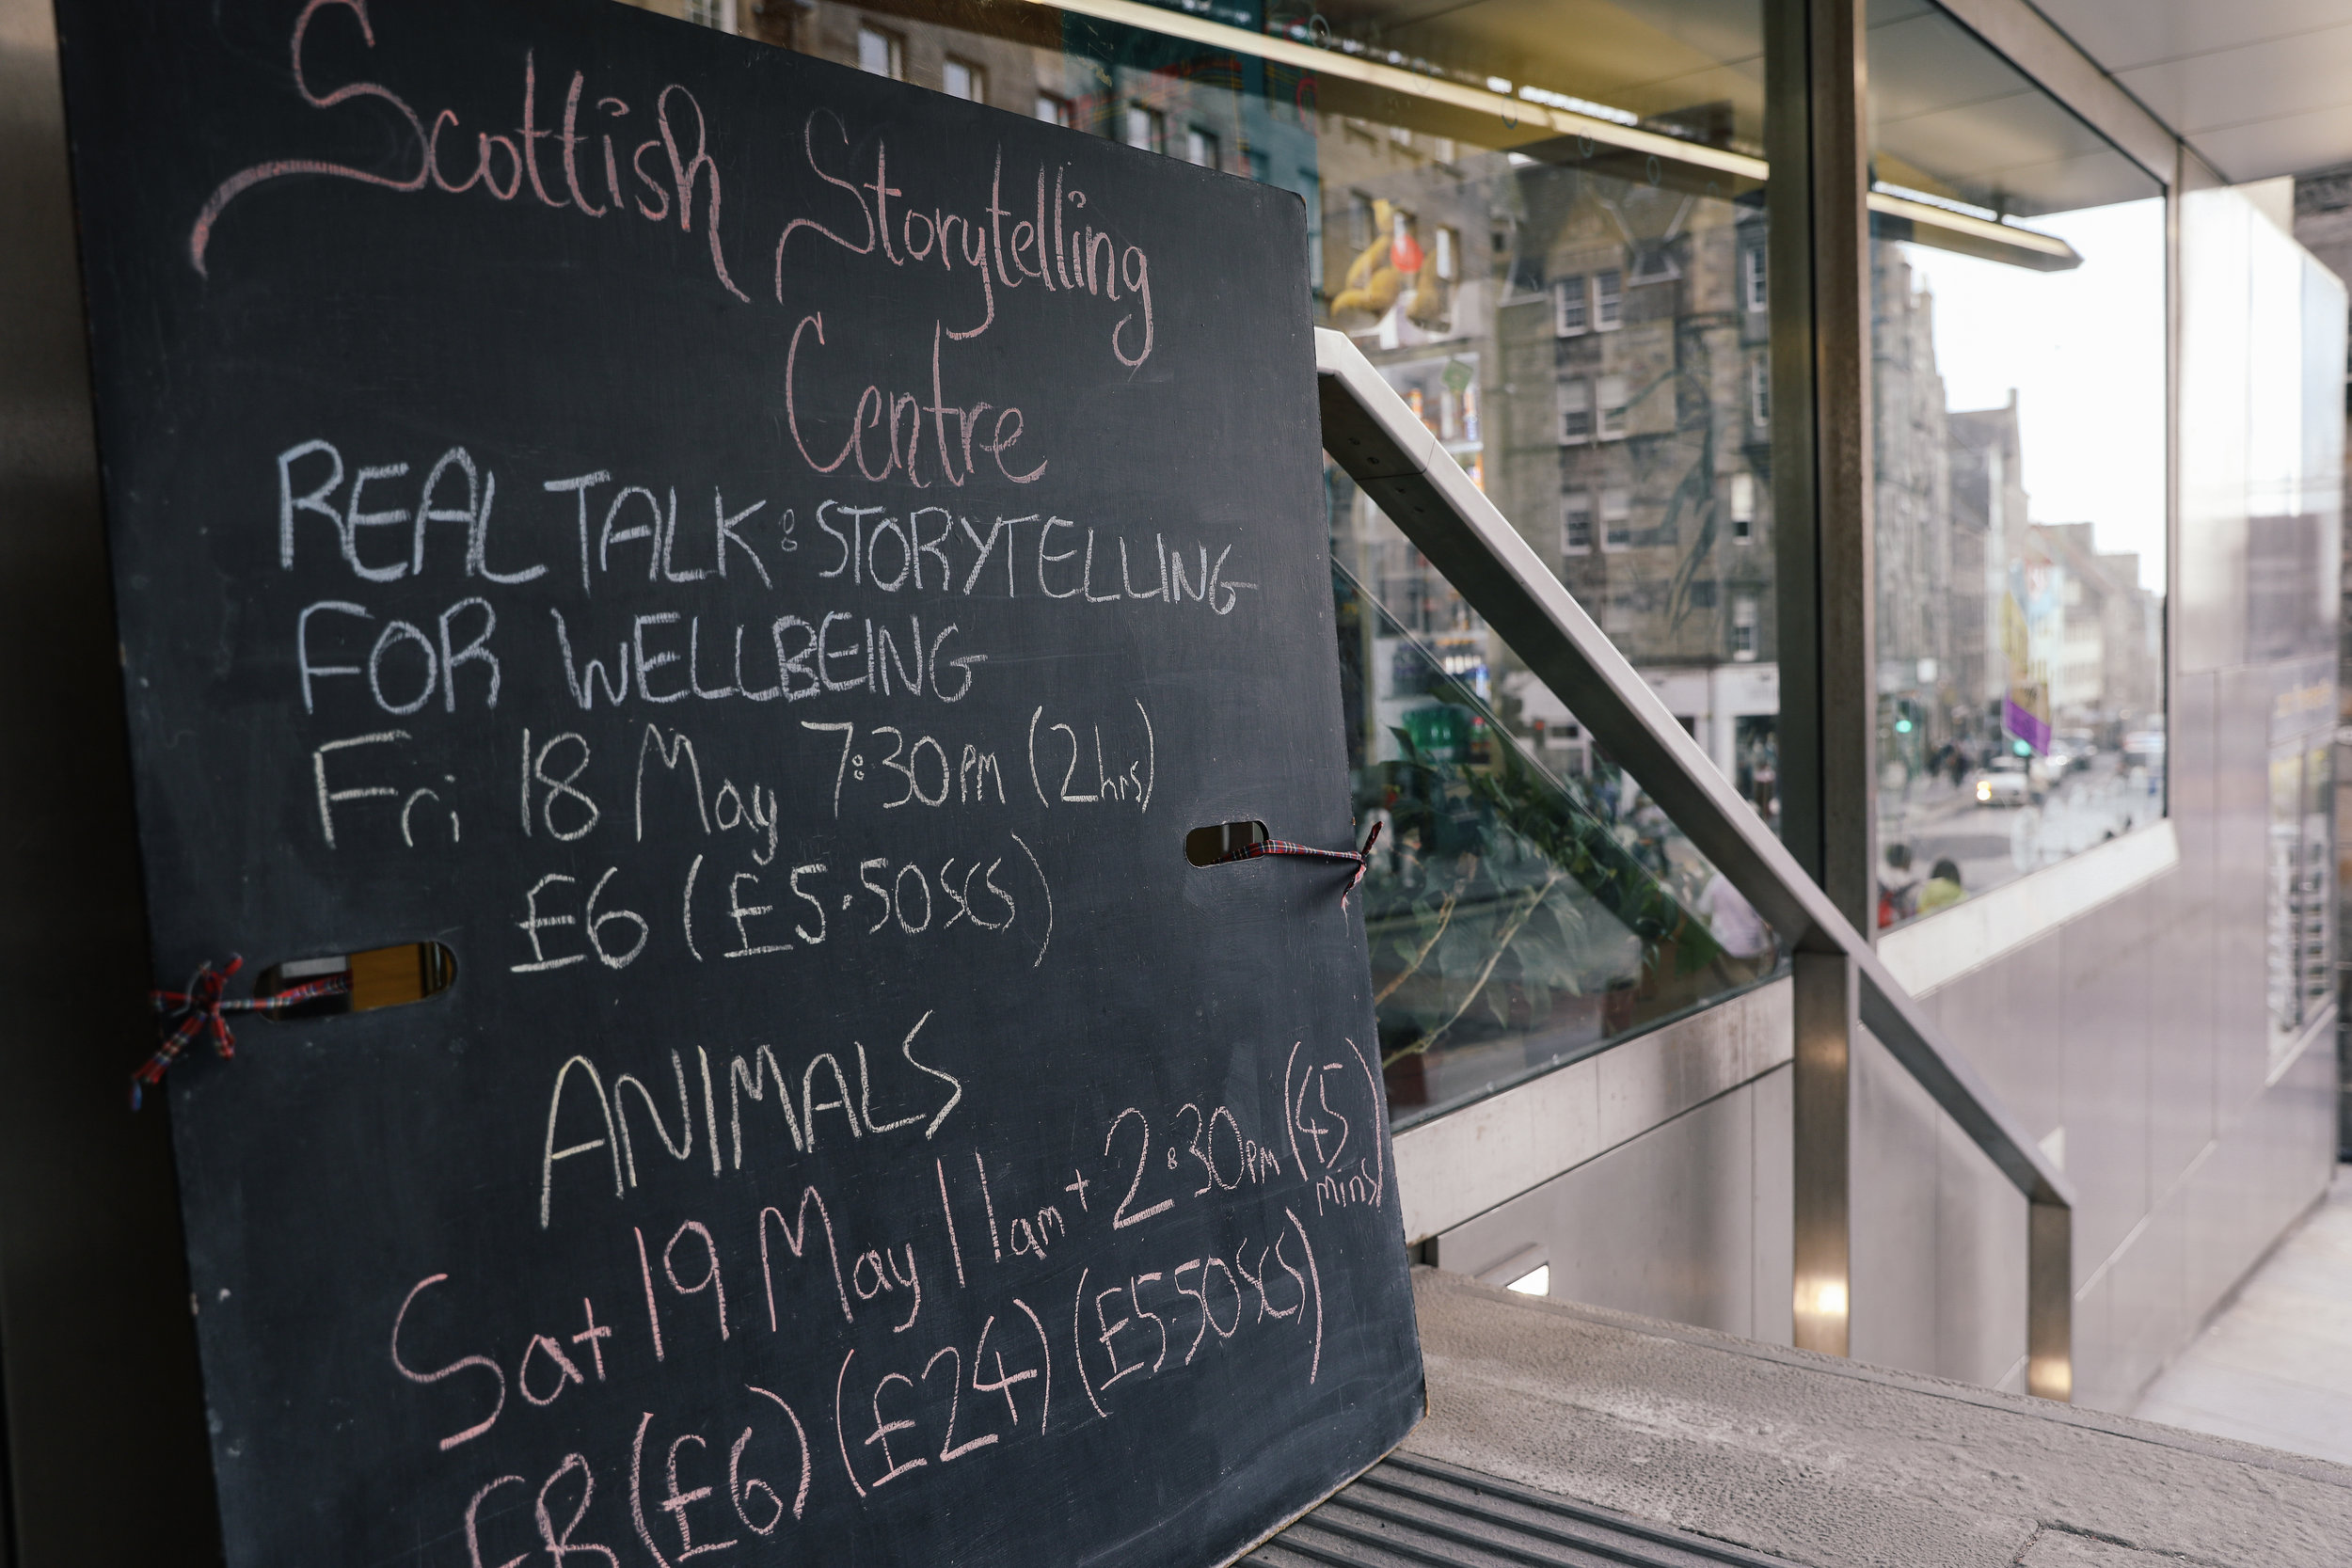 Scottish Storytelling
Centre
REAL TALK: STORYTELLING
FOR WELLBEING
Fri 18 May 7:30PM (2hrs)
£6 (£5.50SCS)
ANIMALS
Sat 19 May 11am + 2:30PM (45
mins)
(£6) (£24) (£5.50SCS)